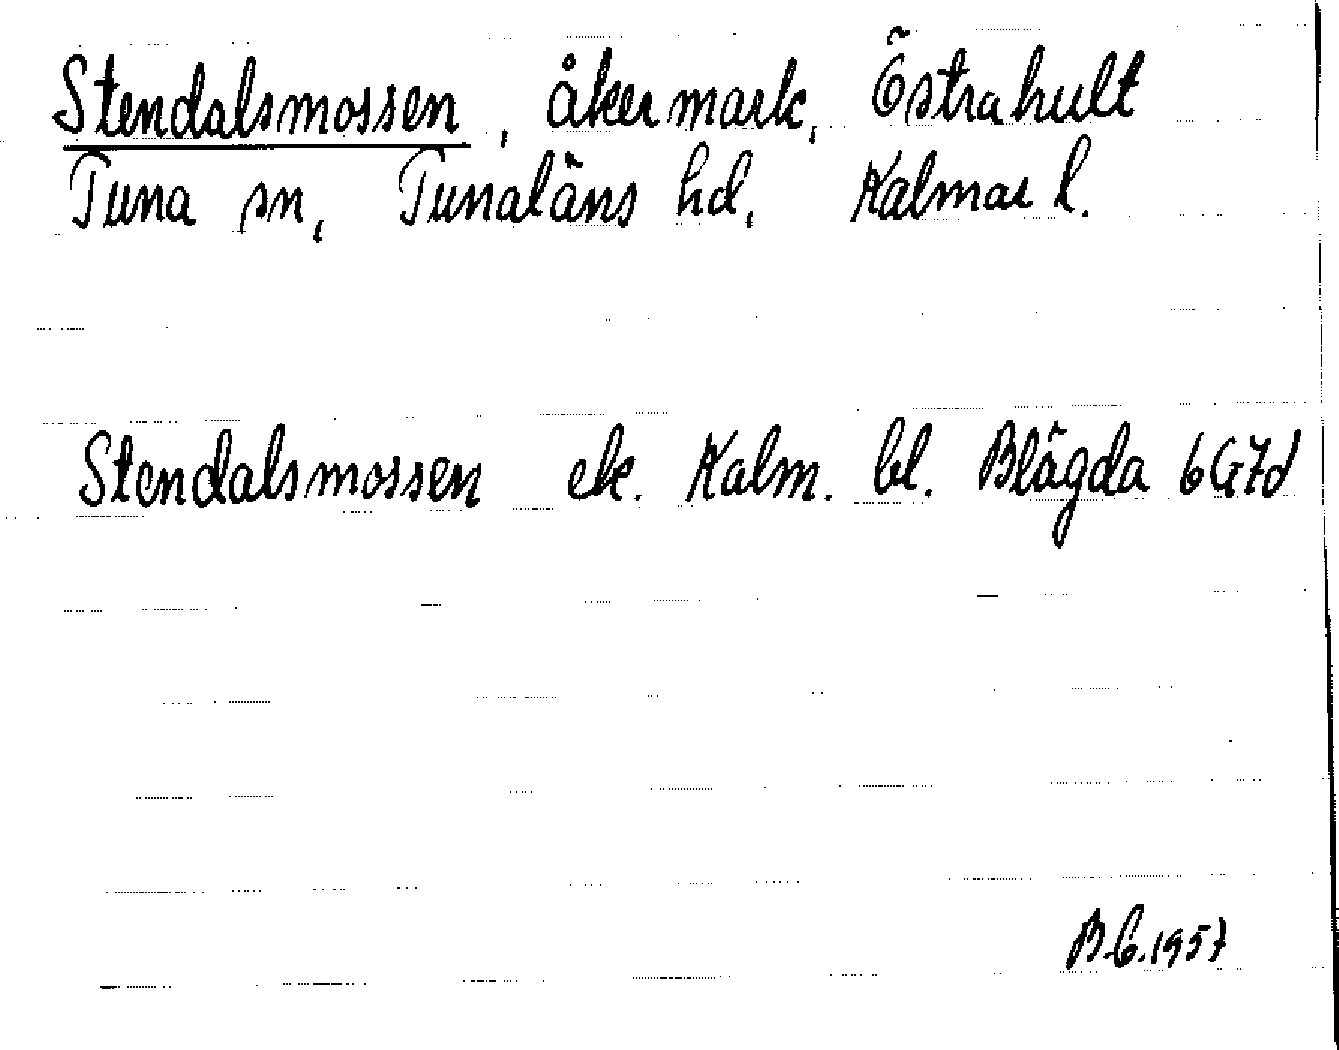 Stendalsmossen, åkermark, Östrahult
Tuna sn, Tunaläns hd, Kalmar l.
Stendalsmossen ek. Kalm. bl. Blägda 6G7d
B.C. 1957